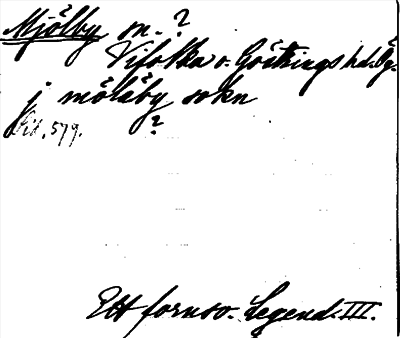 Mjölby sn. ?
Vifolka o. Göstrings hd. Ög.
j mölåby sokn
Sid. 579. ?
Ett fornsv. Legend. III.